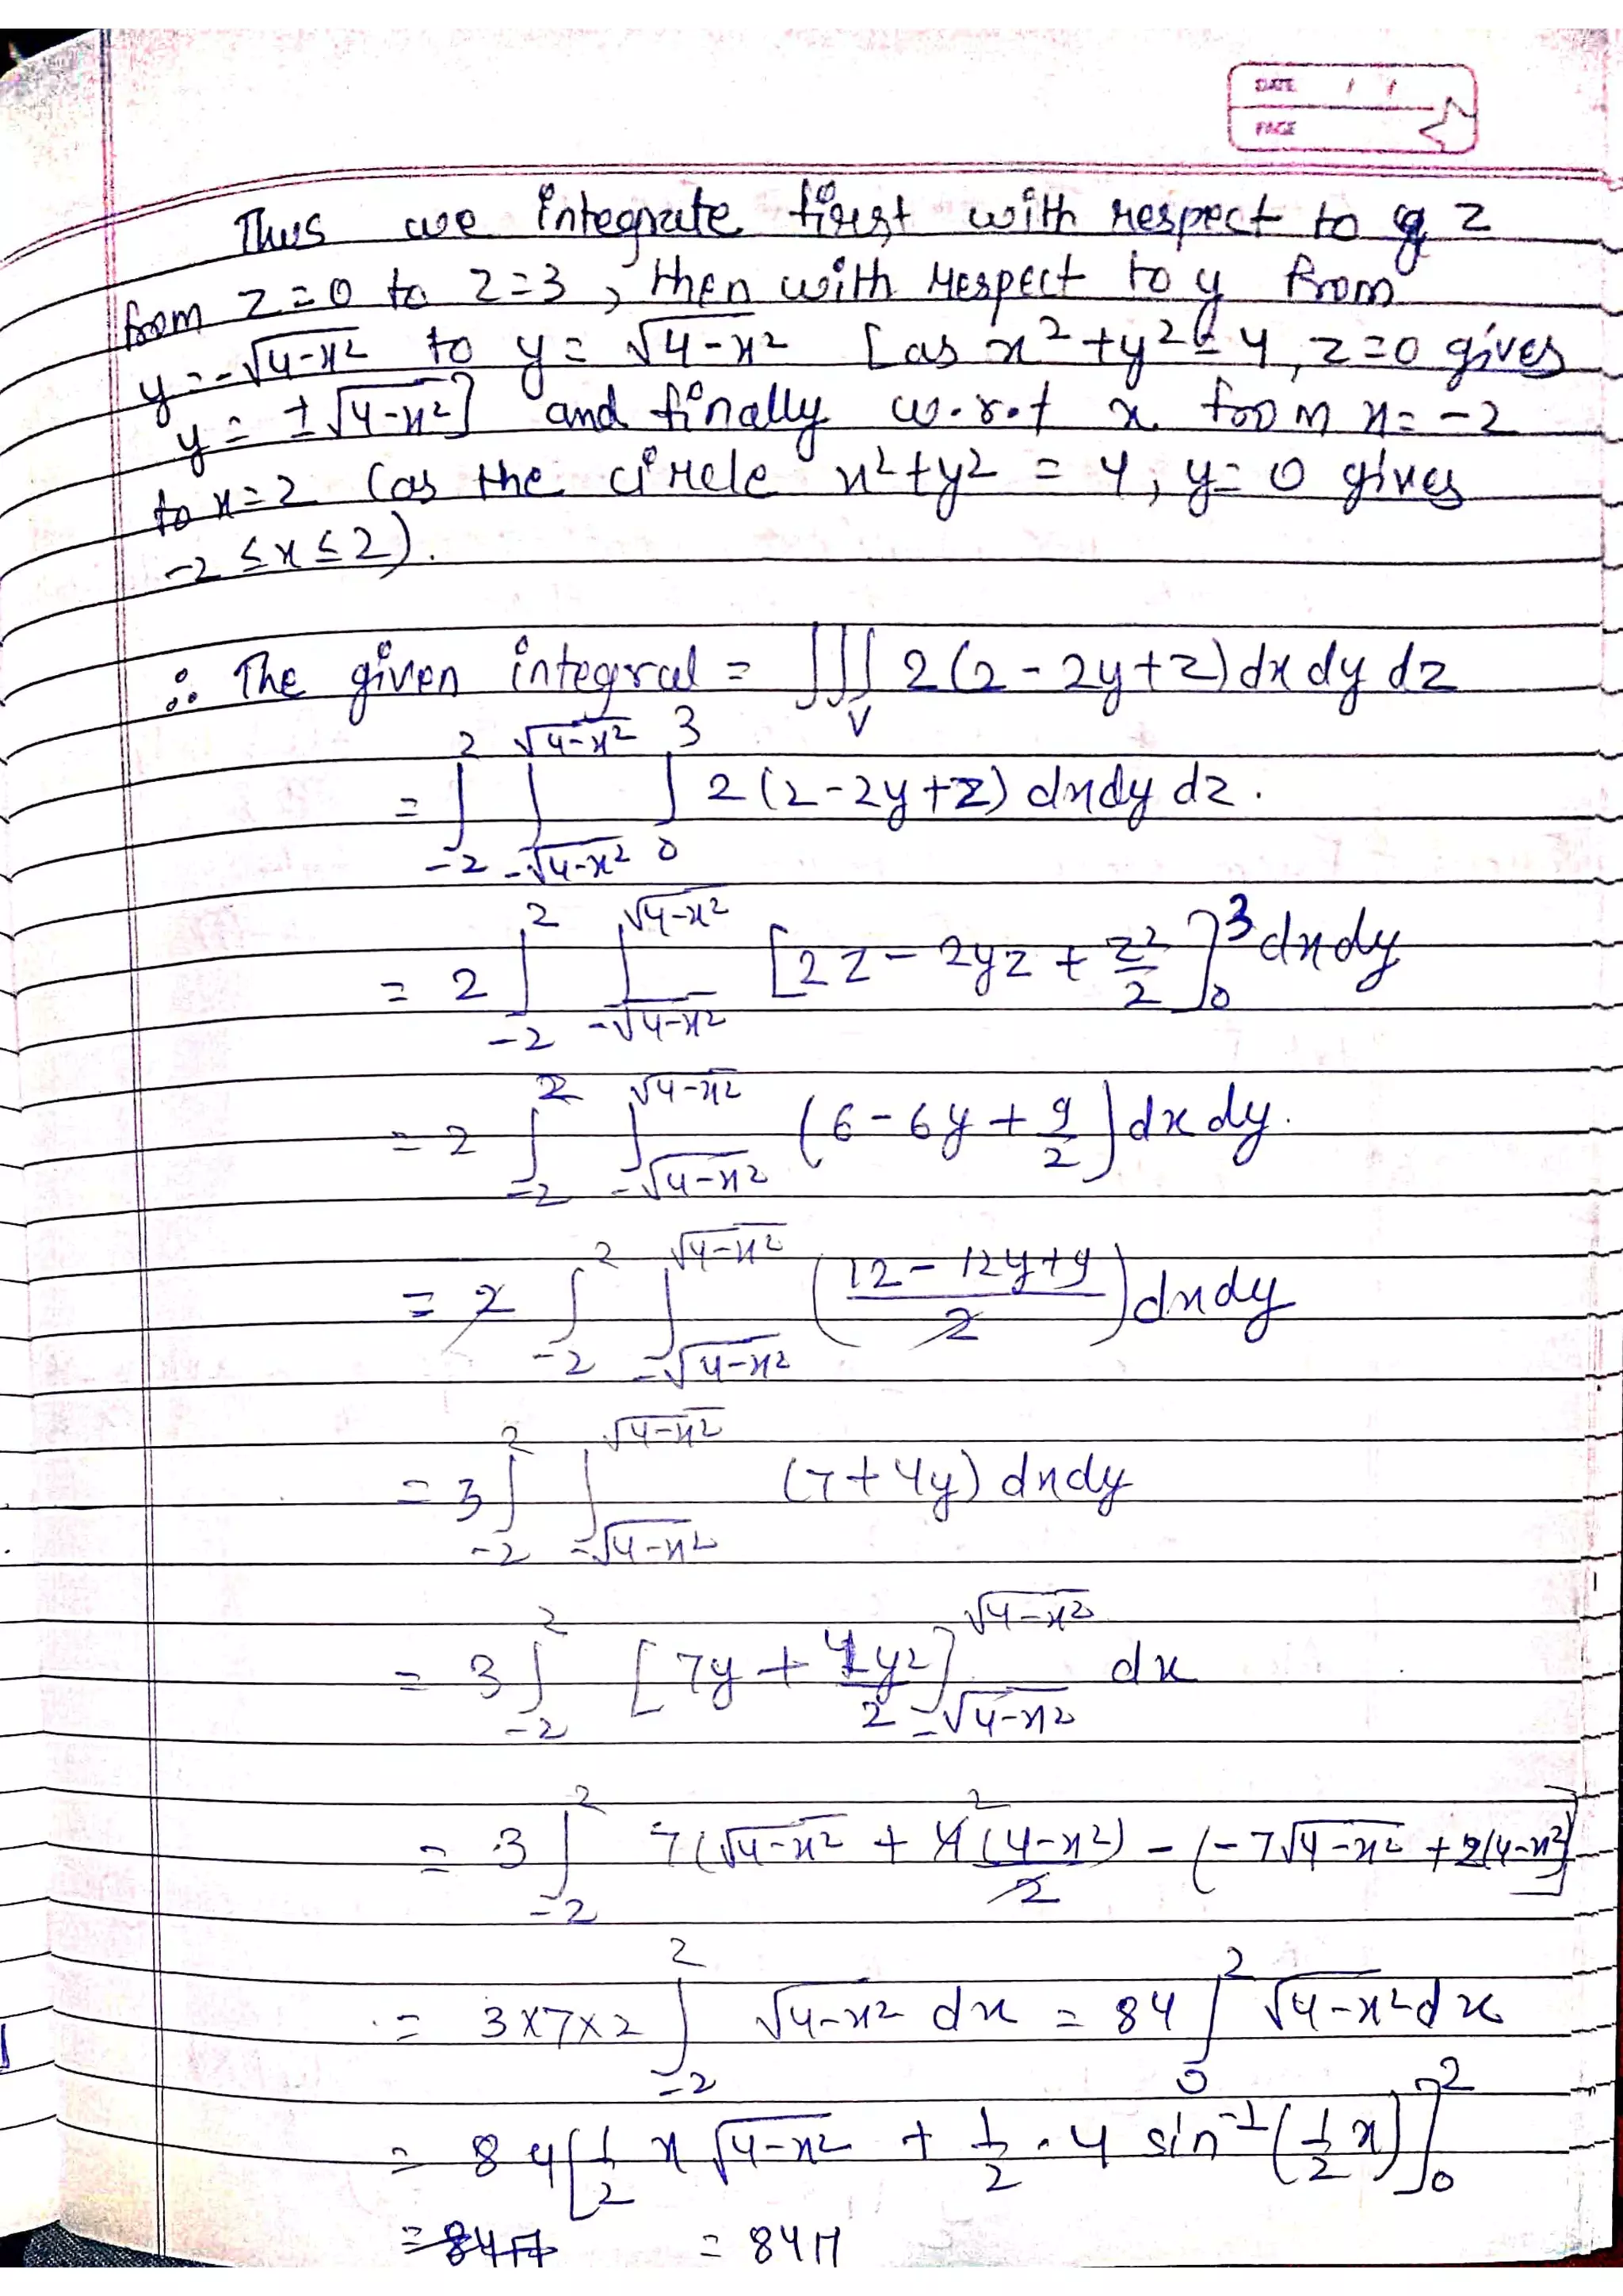 DATE / /
PAGE
Thus we integrate first with respect to z
from z=0 to z=3, then with respect to y from
y=-√4-x² to y=√4-x² [as x²+y²=4, z=0 gives
y=±√4-x²] and finally w.r.t x from x=-2
to x=2 (as the circle x²+y² = 4, y=0 gives
-2≤x≤2).
∴ The given integral = ∭_V 2(2-2y+z)dxdydz
= ∫_{-2}^{2} ∫_{-√4-x²}^{√4-x²} ∫_0^3 2(2-2y+z) dxdydz.
= 2 ∫_{-2}^{2} ∫_{-√4-x²}^{√4-x²} [2z - 2yz + z²/2]_0^3 dxdy
= 2 ∫_{-2}^{2} ∫_{-√4-x²}^{√4-x²} (6-6y+9/2)dxdy.
= 2 ∫_{-2}^{2} ∫_{-√4-x²}^{√4-x²} (12-12y+9/2)dxdy
= 3 ∫_{-2}^{2} ∫_{-√4-x²}^{√4-x²} (7+4y) dxdy
= 3 ∫_{-2}^{2} [7y + 4y²/2]_{-√4-x²}^{√4-x²} dx
= 3 ∫_{-2}^{2} 7(√4-x² + 4²(4-x²)/2 - (-7√4-x² + 2(4-x²)]
= 3×7×2 ∫_{-2}^{2} √4-x² dx = 84 ∫_0^2 √4-x² dx
= 84[1/2 x √4-x² + 1/2 · 4 sin⁻¹(1/2 x)]_0^2
= 84π = 84π